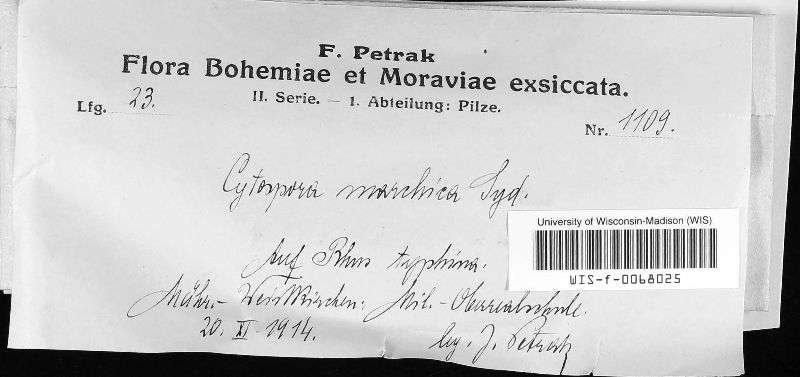 F. Petrak
Flora Bohemiae et Moraviae exsiccata.
II. Serie. — 1. Abteilung: Pilze.
Lfg. 23.
Nr. 1109.
Cytospora marchica Syd.
University of Wisconsin-Madison (WIS)
WIS-f-0068025
Auf Rhus typhina.
Mähr.-Weisskirchen: Mil.-Oberrealschule.
20. XI. 1914.
leg. J. Petrak